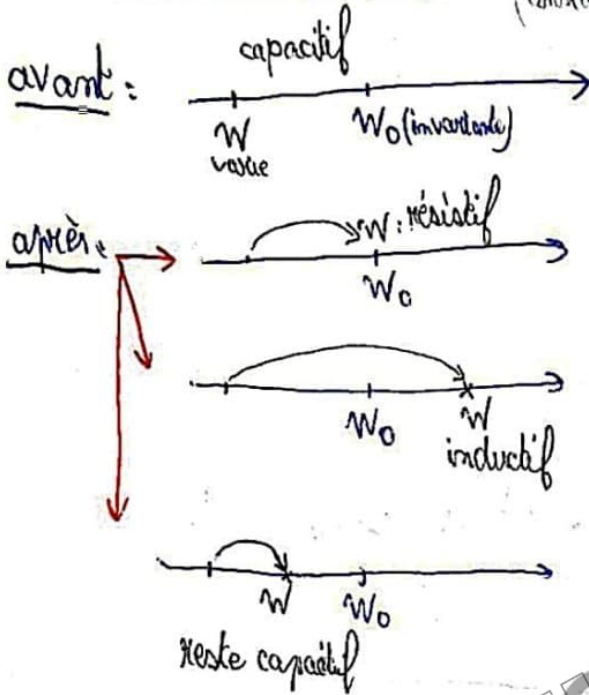 capacitif
avant :
W W₀ (invariante)
varie
après : W : résistif
W₀
W₀ W
inductif
W W₀
reste capacitif